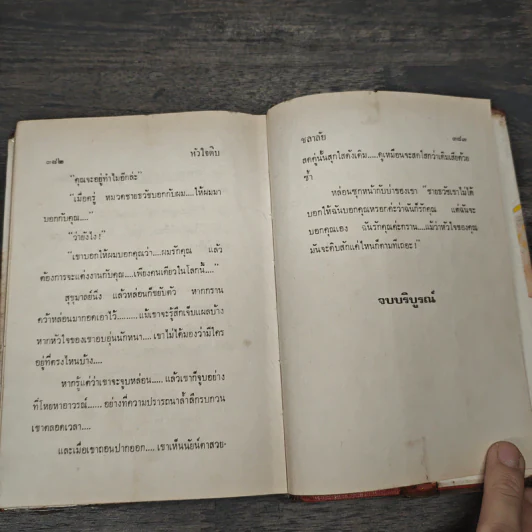 ๓๘๒
หัวใจดิบ
"คุณจะอยู่ทำไมอีกล่ะ"
"เมื่อครู่ หมวดชายธวัชบอกกับผม....ให้ผมมา
บอกกับคุณ...."
"ว่ายังไง?"
"เขาบอกให้ผมบอกคุณว่า....ผมรักคุณ แล้ว
ต้องการจะแต่งงานกับคุณ....เพียงคนเดียวในโลกนี้...."
สุขุมาลย์นิ่ง แล้วหล่อนก็ขยับตัว หากกราน
คว้าหล่อนมากอดเอาไว้.........แม้เขาจะรู้สึกเจ็บแผลบ้าง
หากหัวใจของเขาอบอุ่นนักหนา....เขาไม่ได้มองว่ามีใคร
อยู่ที่ตรงไหนบ้าง....
หากรู้แต่ว่าเขาจะจูบหล่อน.... แล้วเขาก็จูบอย่าง
ที่โหยหาอาวรณ์...... อย่างที่ความปรารถนาล้ำลึกรบกวน
เขาตลอดเวลา....
และเมื่อเขาถอนปากออก.... เขาเห็นนัยน์ตาสวย-
ชลาลัย
๓๘๓
สดคู่นั้นสุกใสดังเดิม.....ดูเหมือนจะสุกใสกว่าเดิมเสียด้วย
ซ้ำ
หล่อนซุกหน้ากับบ่าของเขา "ชายธวัชเขาไม่ได้
บอกให้ฉันบอกคุณหรอกค่ะว่าฉันก็รักคุณ แต่ฉันจะ
บอกคุณเอง ฉันรักคุณค่ะกราน....แม้ว่าหัวใจของคุณ
มันจะดิบสักแค่ไหนก็ตามทีเถอะ!
จบบริบูรณ์